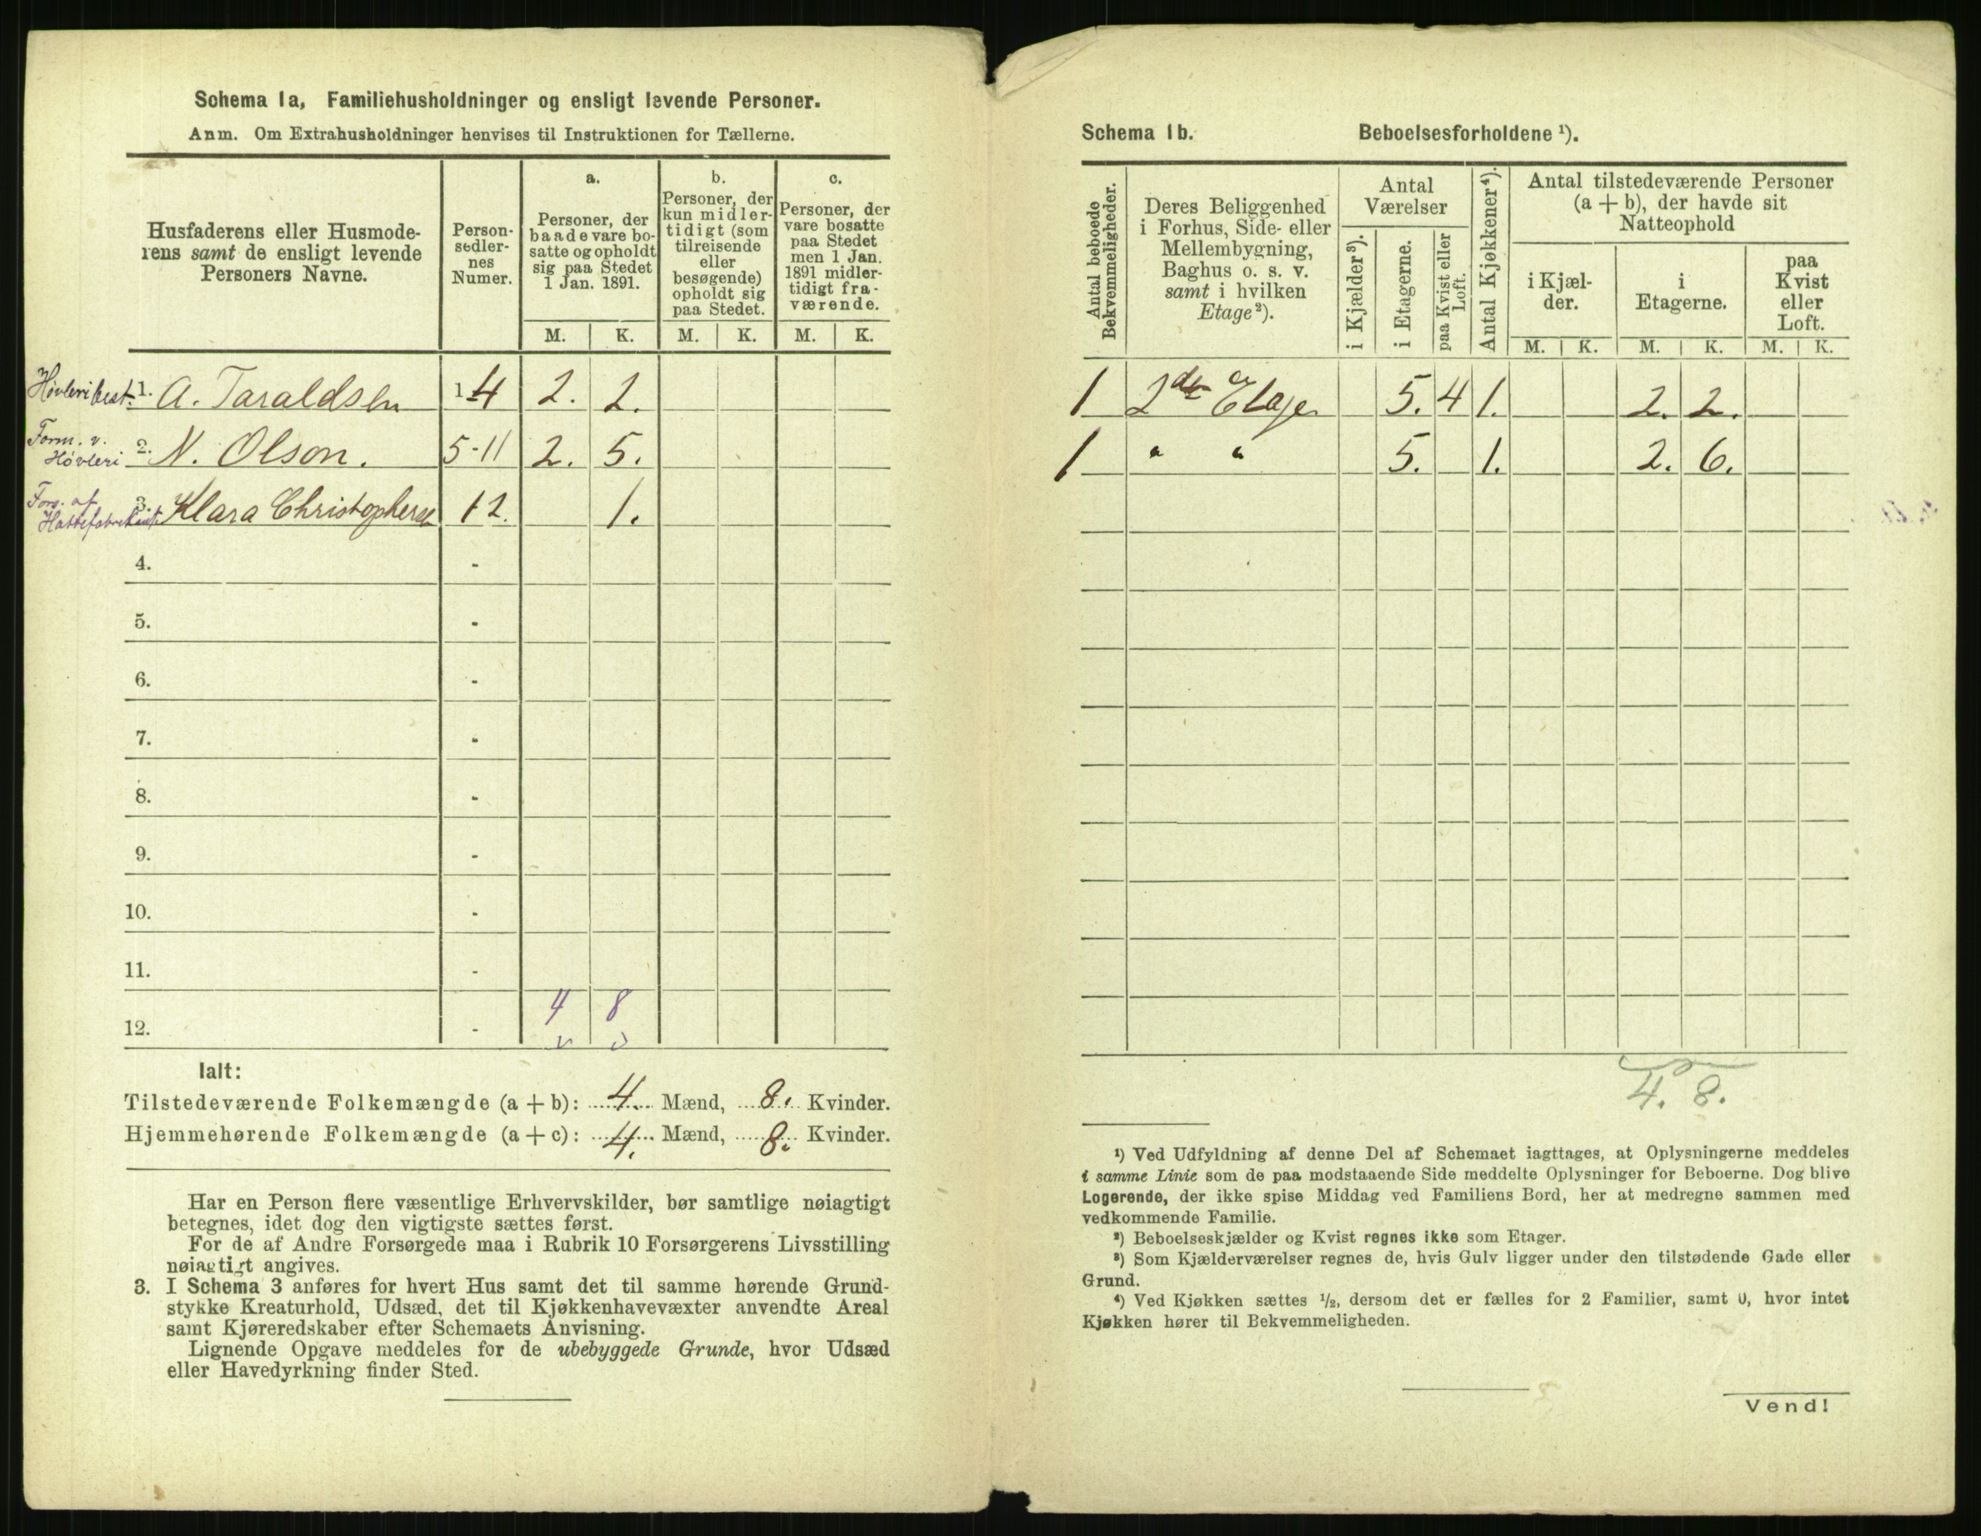 Schema 1a, Familiehusholdninger og ensligt levende Personer.
Anm. Om Extrahusholdninger henvises til Instruktionen for Tællerne.
Husfaderens eller Husmode-
rens samt de ensligt levende
Personers Navne.
Person-
sedler-
nes
Numer.
a.
Personer, der
baade vare bo-
satte og opholdt
sig paa Stedet
1 Jan. 1891.
b.
Personer, der
kun midler-
tidigt (som
tilreisende
eller
besøgende)
opholdt sig
paa Stedet.
c.
Personer, der
vare bosatte
paa Stedet
men 1 Jan.
1891 midler-
tidigt fra-
værende.
M. K. M. K. M. K.
Høvleribest. 1. A. Taraldsen 1-4 2. 2.
Form. v.
Høvleri 2. N. Olson. 5-11 2. 5.
Fors. af
Hattefabrikant. 3. Klara Christophersen 12. 1.
4. -
5. -
6. -
7. -
8. -
9. -
10. -
11. -
4 8
12. -
Ialt:
Tilstedeværende Folkemængde (a + b): 4. Mænd, 8. Kvinder.
Hjemmehørende Folkemængde (a + c): 4. Mænd, 8. Kvinder.
Har en Person flere væsentlige Erhvervskilder, bør samtlige nøiagtigt
betegnes, idet dog den vigtigste sættes først.
For de af Andre Forsørgede maa i Rubrik 10 Forsørgerens Livsstilling
nøiagtigt angives.
3. I Schema 3 anføres for hvert Hus samt det til samme hørende Grund-
stykke Kreaturhold, Udsæd, det til Kjøkkenhavevæxter anvendte Areal
samt Kjøreredskaber efter Schemaets Anvisning.
Lignende Opgave meddeles for de ubebyggede Grunde, hvor Udsæd
eller Havedyrkning finder Sted.
Schema 1b. Beboelsesforholdene ¹).
Antal beboede
Bekvemmeligheder.
Deres Beliggenhed
i Forhus, Side- eller
Mellembygning,
Baghus o. s. v.
samt i hvilken
Etage²).
Antal
Værelser
i Kjælder³).
i Etagerne.
paa Kvist eller
Loft.
Antal Kjøkkener⁴).
Antal tilstedeværende Personer
(a + b), der havde sit
Natteophold
i Kjæl-
der.
i
Etagerne.
paa
Kvist
eller
Loft.
M. K. M. K. M. K.
1 2de Etage 5. 4 1. 2. 2.
1 " " 5. 1. 2. 6.
4. 8.
¹) Ved Udfyldning af denne Del af Schemaet iagttages, at Oplysningerne meddeles
i samme Linie som de paa modstaaende Side meddelte Oplysninger for Beboerne. Dog blive
Logerende, der ikke spise Middag ved Familiens Bord, her at medregne sammen med
vedkommende Familie.
²) Beboelseskjælder og Kvist regnes ikke som Etager.
³) Som Kjælderværelser regnes de, hvis Gulv ligger under den tilstødende Gade eller
Grund.
⁴) Ved Kjøkken sættes ½, dersom det er fælles for 2 Familier, samt 0, hvor intet
Kjøkken hører til Bekvemmeligheden.
Vend!